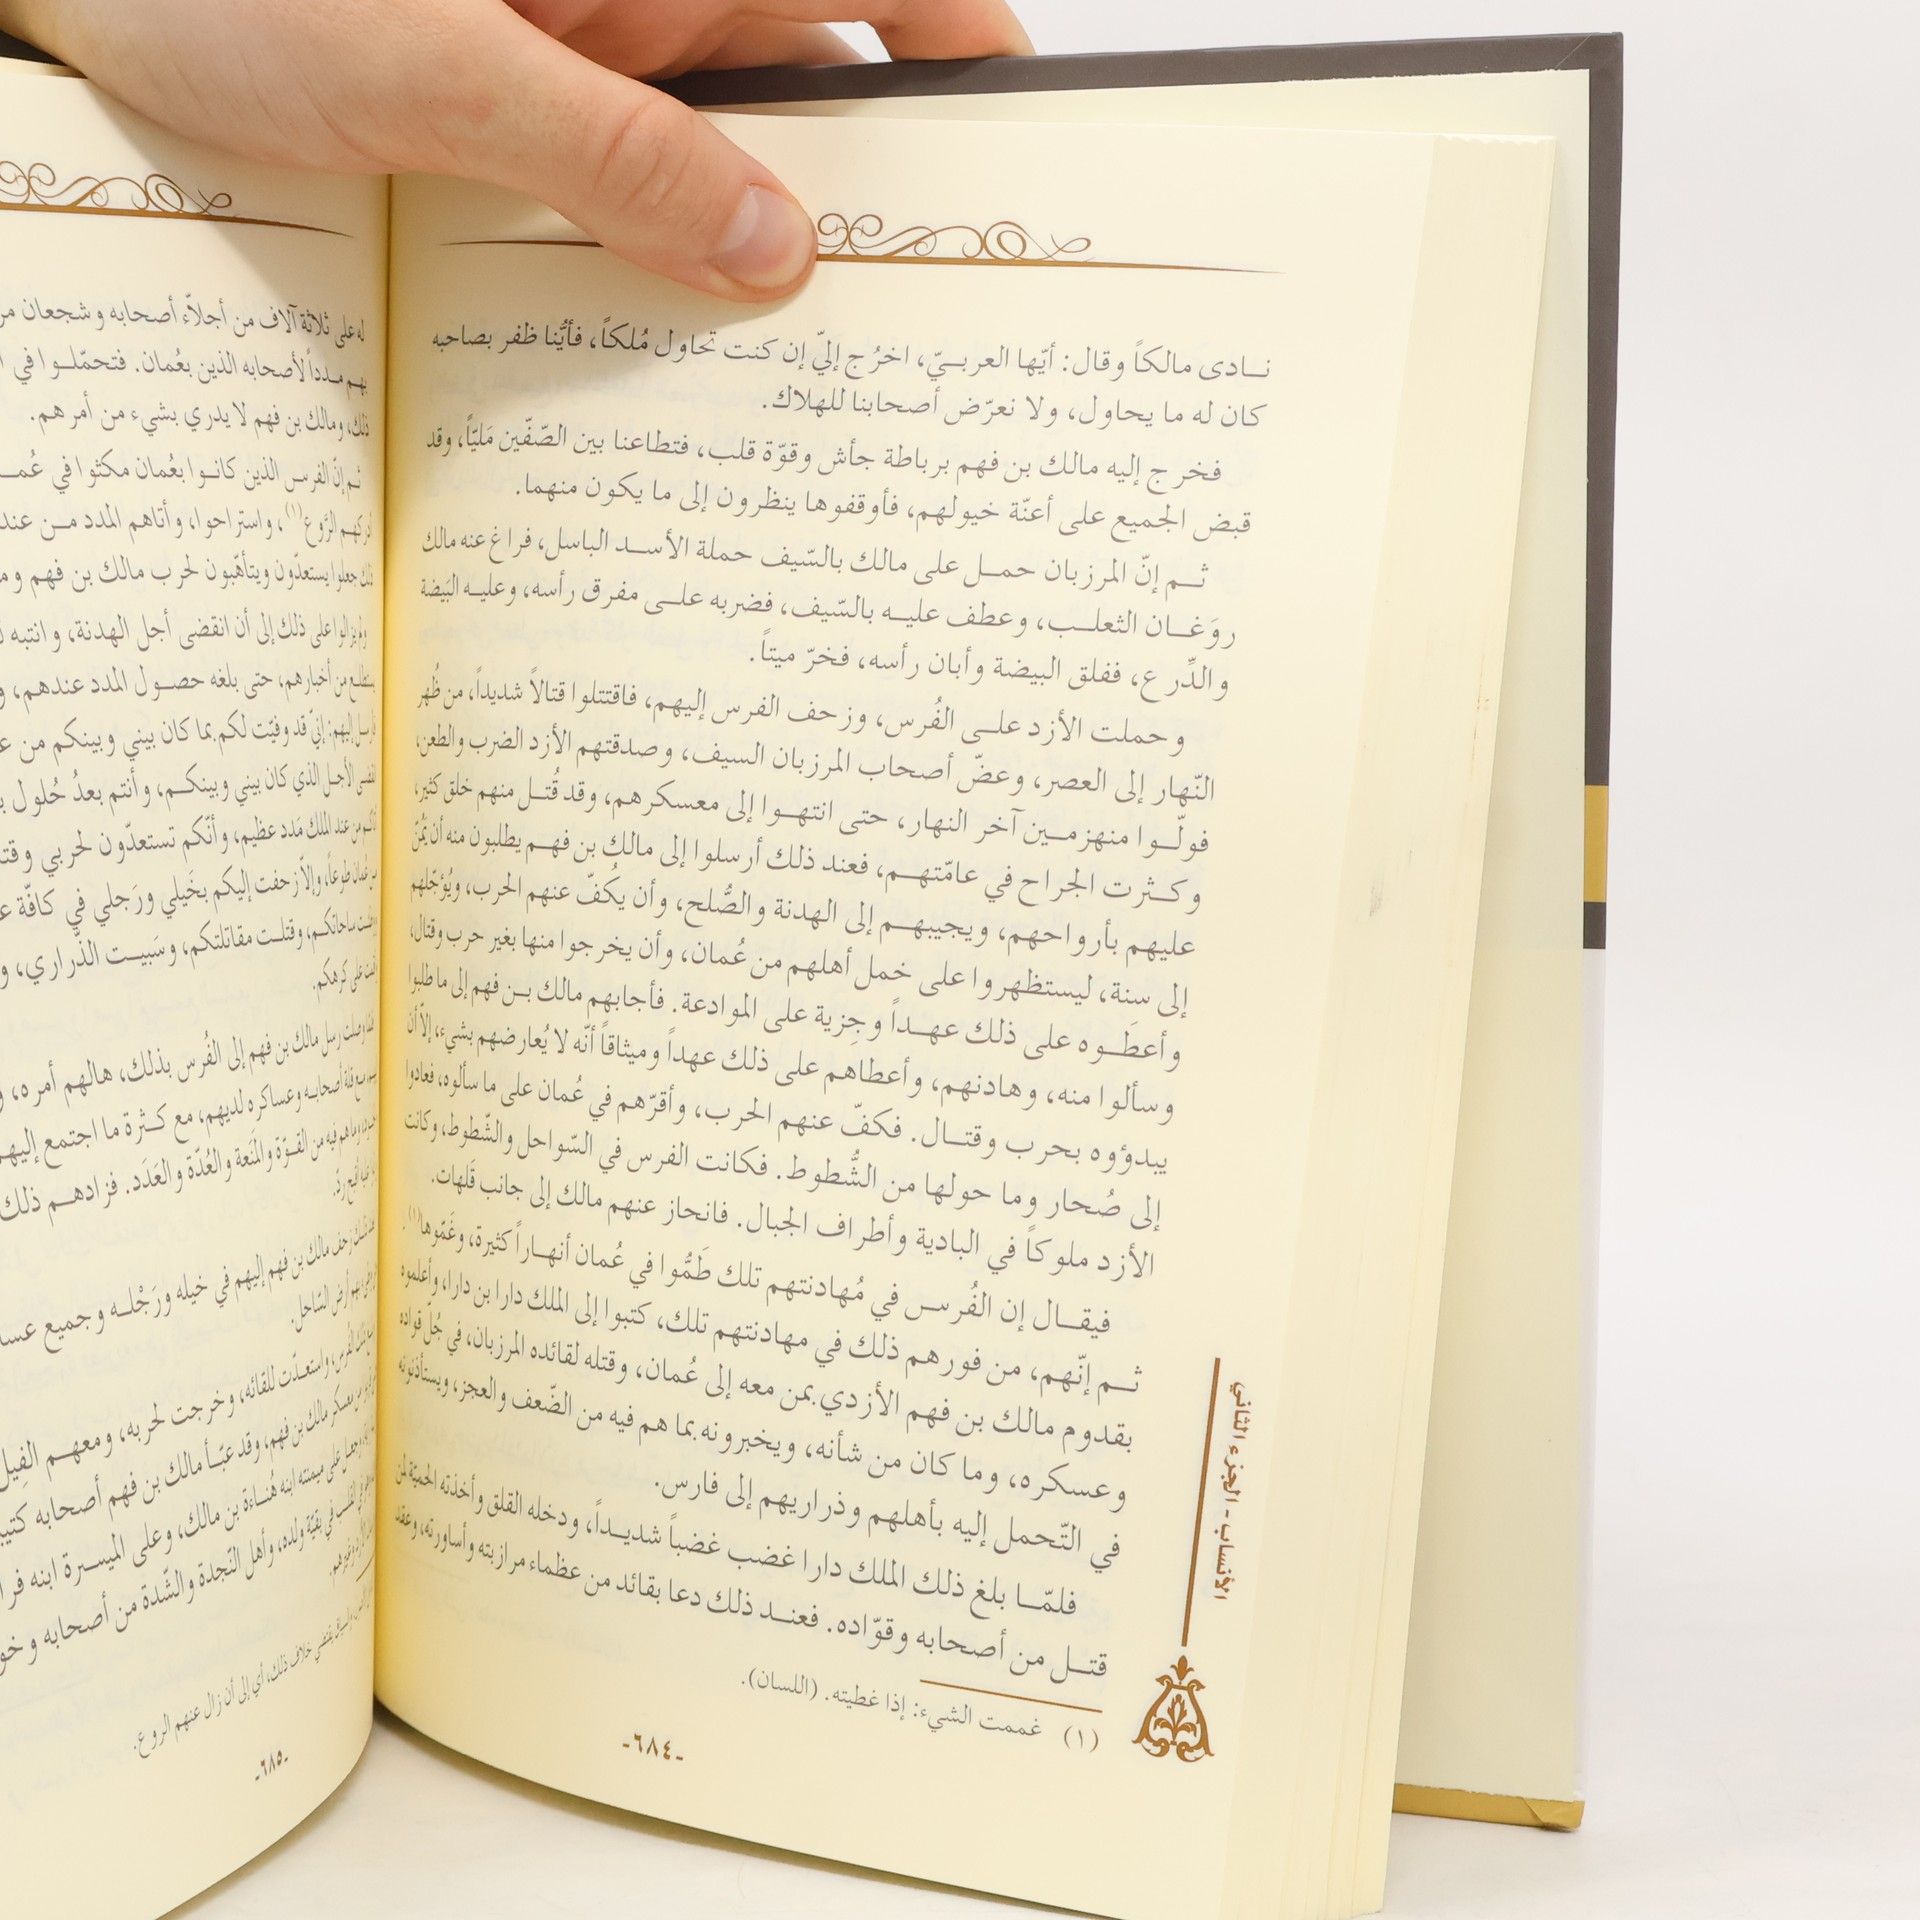 نادى مالكاً وقال: أيّها العربيّ، اخرُج إليّ إن كنت تحاول مُلكاً، فأيُّنا ظفر بصاحبه
كان له ما يحاول، ولا نعرّض أصحابنا للهلاك.
فخرج إليه مالك بن فهم برباطة جأش وقوّة قلب، فتطاعنا بين الصّفّين مَليّاً، وقد
قبض الجميع على أعنّة خيولهم، فأوقفوها ينظرون إلى ما يكون منهما.
ثم إنّ المرزبان حمل على مالك بالسّيف حملة الأسد الباسل، فراغ عنه مالك
روَغان الثعلب، وعطف عليه بالسّيف، فضربه على مفرق رأسه، وعليه البَيضة
والدِّرع، ففلق البيضة وأبان رأسه، فخرّ ميتاً.
وحملت الأزد على الفُرس، وزحف الفرس إليهم، فاقتتلوا قتالاً شديداً، من ظُهر
النّهار إلى العصر، وعضّ أصحاب المرزبان السيف، وصدقتهم الأزد الضرب والطعن،
فولّوا منهزمين آخر النهار، حتى انتهوا إلى معسكرهم، وقد قُتل منهم خلق كثير،
وكثرت الجراح في عامّتهم، فعند ذلك أرسلوا إلى مالك بن فهم يطلبون منه أن يَمُنّ
عليهم بأرواحهم، ويجيبهم إلى الهدنة والصُّلح، وأن يكُفّ عنهم الحرب، ويُؤجّلهم
إلى سنة، ليستظهروا على حمل أهلهم من عُمان، وأن يخرجوا منها بغير حرب وقتال،
وأعطَوه على ذلك عهداً وجِزية على الموادعة. فأجابهم مالك بن فهم إلى ما طلبوا
وسألوا منه، وهادنهم، وأعطاهم على ذلك عهداً وميثاقاً أنّه لا يُعارضهم بشيء، إلّا أن
يبدؤوه بحرب وقتال. فكفّ عنهم الحرب، وأقرّهم في عُمان على ما سألوه، فعادوا
إلى صُحار وما حولها من الشُّطوط. فكانت الفرس في السّواحل والشّطوط، وكانت
الأزد ملوكاً في البادية وأطراف الجبال. فانحاز عنهم مالك إلى جانب قَلهات.
فيقال إن الفُرس في مُهادنتهم تلك طَمُّوا في عُمان أنهاراً كثيرة، وغَمّوها(١).
ثم إنّهم، من فورهم ذلك في مهادنتهم تلك، كتبوا إلى الملك دارا بن دارا، وأعلموه
بقدوم مالك بن فهم الأزدي بمن معه إلى عُمان، وقتله لقائده المرزبان، في جُلّ قواده
وعسكره، وما كان من شأنه، ويخبرونه بما هم فيه من الضّعف والعجز، ويستأذنونه
في التّحمل إليه بأهلهم وذراريهم إلى فارس.
فلمّا بلغ ذلك الملك دارا غضب غضباً شديداً، ودخله القلق وأخذته الحميّة لمن
قتل من أصحابه وقوّاده. فعند ذلك دعا بقائد من عظماء مرازبته وأساورته، وعقد
(١) غممت الشيء: إذا غطيته. (اللسان).
-٦٨٤-
الأنساب - الجزء الثاني
له على ثلاثة آلاف من أجلاّء أصحابه وشجعان
بهم مدداً لأصحابه الذين بعُمان. فتحمّلوا في
ذلك، ومالك بن فهم لا يدري بشيء من أمرهم.
ثم إنّ الفرس الذين كانوا بعُمان مكثوا في
الرَّوع(١)، واستراحوا، وأتاهم المدد من عند
ذلك جعلوا يستعدّون ويتأهّبون لحرب مالك بن فهم
على ذلك إلى أن انقضى أجل الهدنة، وانتبه
من أخبارهم، حتى بلغه حصول المدد عندهم،
إليهم: إنّي قد وفيّت لكم بما كان بيني وبينكم من
الأجل الذي كان بيني وبينكم، وأنتم بعدُ حُلول
من عند الملك مَدد عظيم، وأنّكم تستعدّون لحربي
طوعاً، وإلاّ زحفت إليكم بخَيلي ورَجلي في كافّة
ساحاتكم، وقتلت مقاتلتكم، وسَبيت الذّراري،
على كرهكم.
وصلت رسل مالك بن فهم إلى الفُرس بذلك، هالهم أمره،
قلة أصحابه وعساكره لديهم، مع كثرة ما اجتمع
وما هم فيه من القوّة والمَنَعة والعُدّة والعَدَد. فزادهم ذلك
أقبح ردّ.
زحف مالك بن فهم إليهم في خيله ورَجْله وجميع
أرض السّاحل.
الفُرس، واستعدّت للقائه، وخرجت لحربه، ومعهم
من معسكر مالك بن فهم، وقد عبّأ مالك بن فهم أصحابه
وجعل على ميمنته ابنه هُناءة بن مالك، وعلى الميسرة ابنه
في القلب في بقيّة ولده، وأهل النّجدة والشّدة من أصحابه
خلاف ذلك، أي إلى أن زال عنهم الروع.
-٦٨٥-